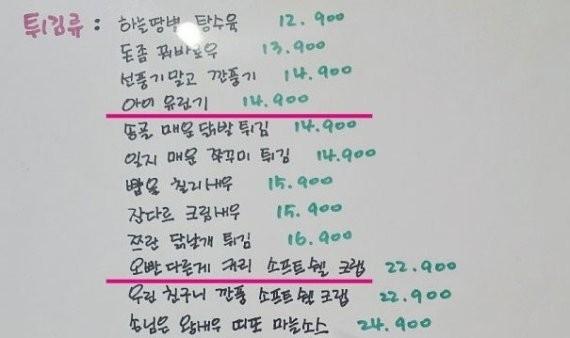 튀김류 : 하늘땅별 탕수육 12.900
돈좀 꿔바로우 13.900
선풍기말고 깐풍기 14.900
아이 유린기 14.900
송골 매운 닭발 튀김 14.900
일지 매운 쭈꾸미 튀김 14.900
빨올 칠리새우 15.900
잔다르 크림새우 15.900
쯔란 닭날개 튀김 16.900
오빤 다른게 커리 소프트 쉘 크랩 22.900
우린 친구니 깐풍 소프트 쉘 크랩 22.900
손님은 왕새우 띠또 마늘소스 24.900